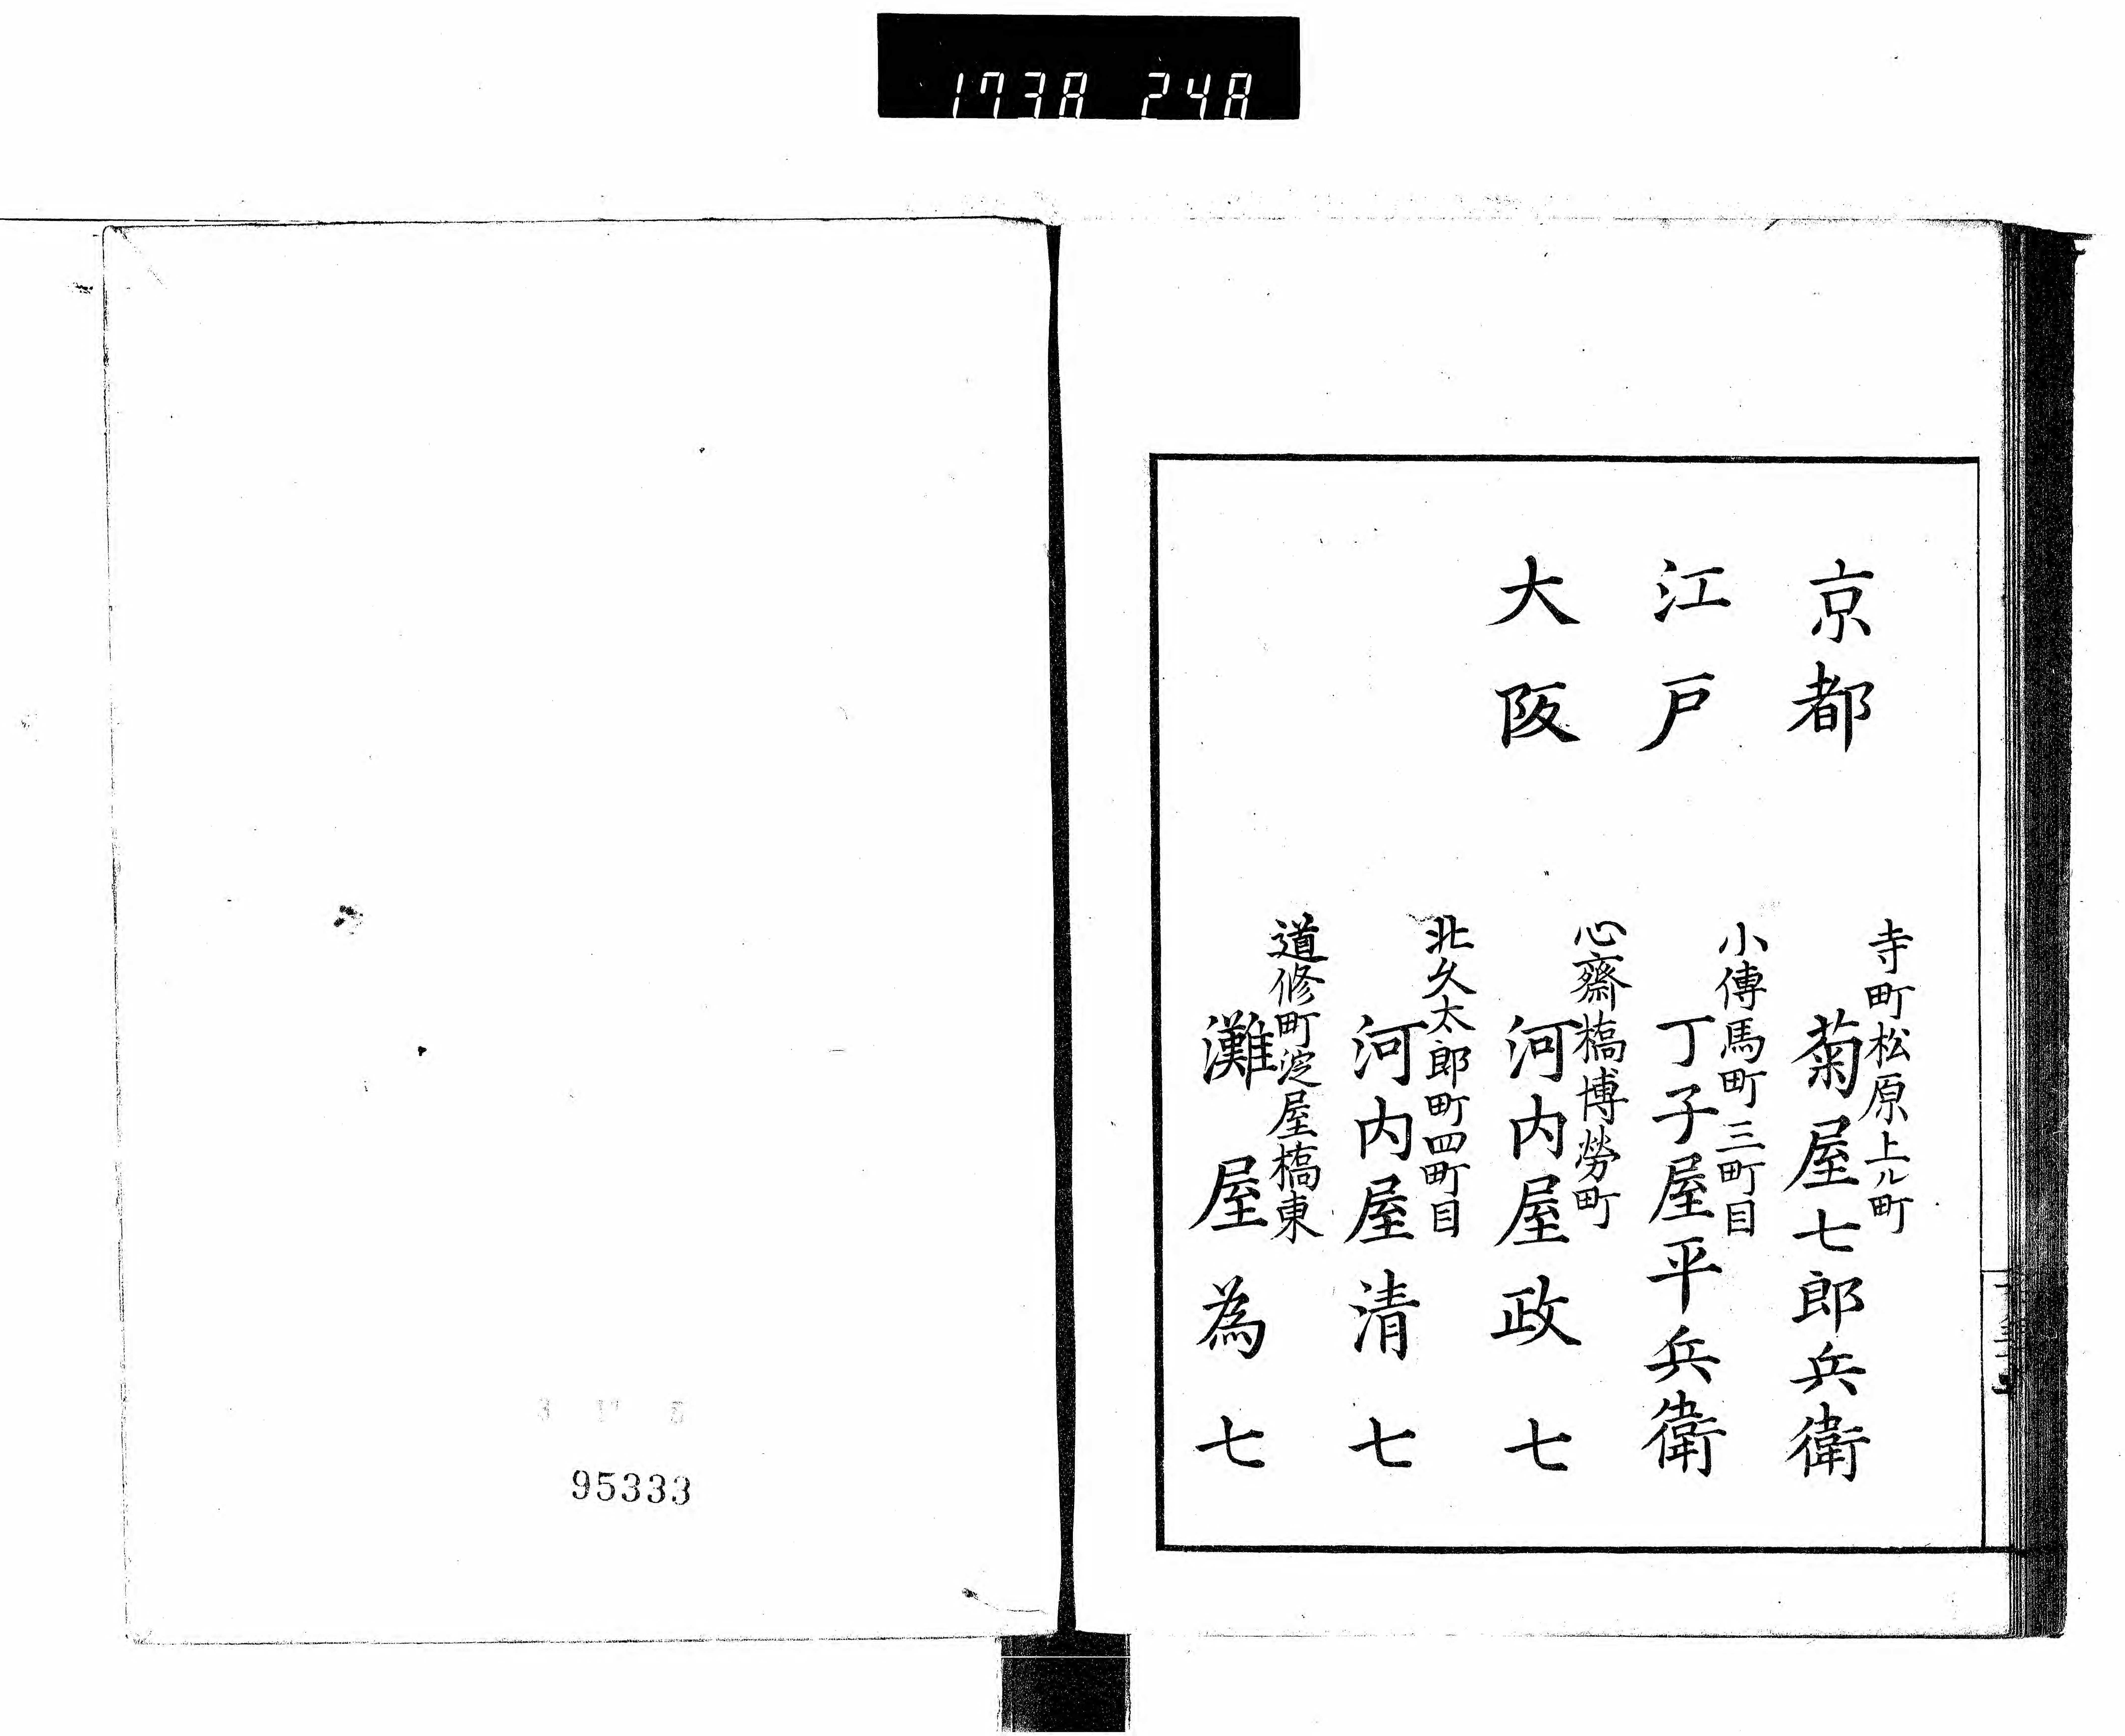 1738 248
京都
寺町松原上ル町
菊屋七郎兵衛
江戸
小傳馬町三町目
丁子屋平兵衛
大阪
心齋橋博勞町
河内屋政七
北久太郎町四町目
河内屋清七
道修町淀屋橋東
灘屋為七
95333